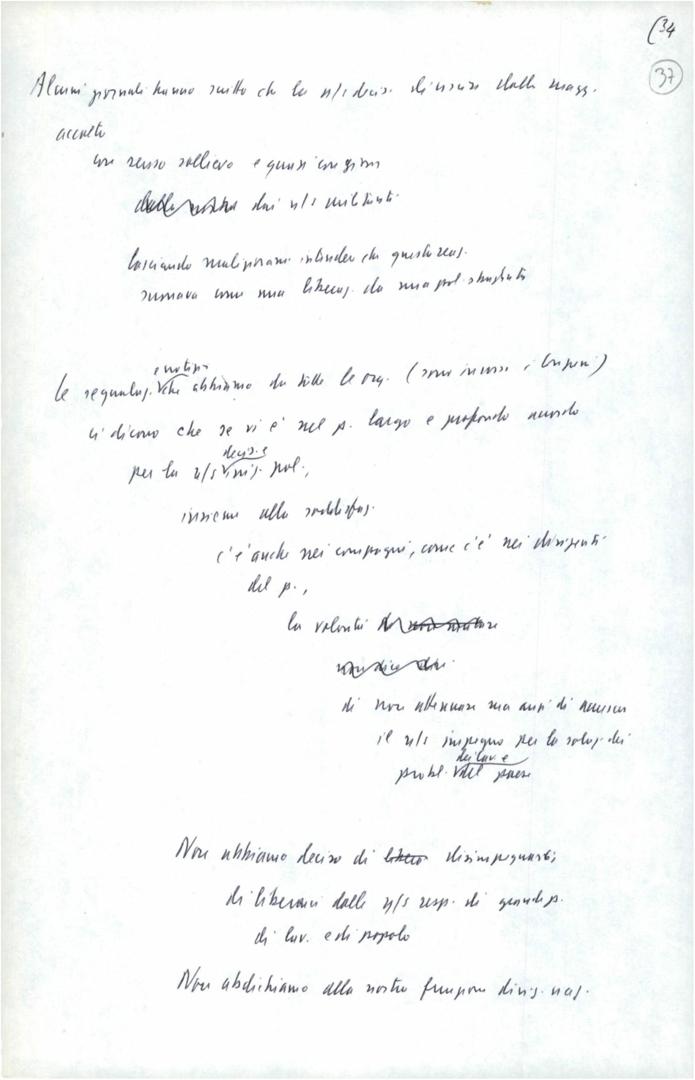 (34
37
Alcuni giornali hanno scritto che la n/s decis. di uscire dalla magg.
accolta
con senso sollievo e quasi con gioia
dalla nostra dai n/s militanti.
lasciando malignam. intendere che questa reaz.
suonava come una liberaz. da una pol. sbagliata
Le segnalaz. e notizie che abbiamo da tutte le org. (sono in corso i Congressi)
ci dicono che se vi è nel p. largo e profondo accordo
per la n/s decis. e iniz. pol.,
insieme alla soddisfaz.
c'è anche nei compagni, come c'è nei dirigenti
del p.,
la volontà
di non attenuare ma anzi di accrescere
il n/s impegno per la soluz. dei
probl. dei lav. e del paese
Non abbiamo deciso di disimpegnarci;
di liberarci dalle n/s resp. di grande p.
di lav. e di popolo
Non abdichiamo alla nostra funzione dirig. naz.